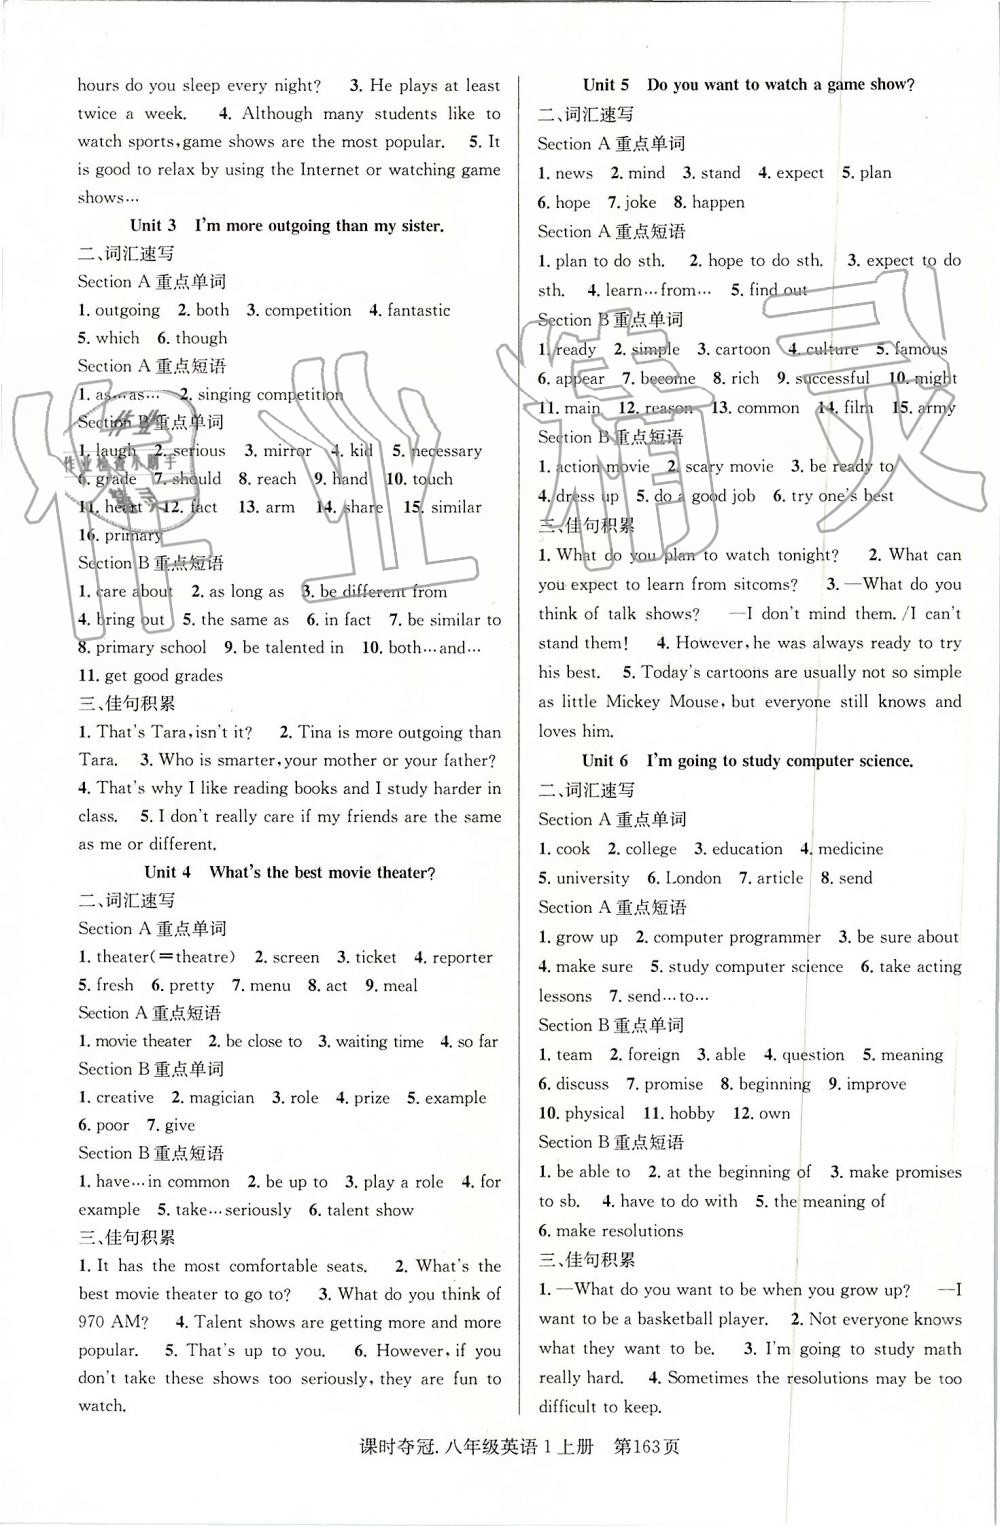 hours do you sleep every night? 3. He plays at least
twice a week. 4. Although many students like to
watch sports,game shows are the most popular. 5. It
is good to relax by using the Internet or watching game
shows…
Unit 3 I'm more outgoing than my sister.
二、词汇速写
Section A 重点单词
1. outgoing 2. both 3. competition 4. fantastic
5. which 6. though
Section A 重点短语
1. as…as… 2. singing competition
Section B 重点单词
1. laugh 2. serious 3. mirror 4. kid 5. necessary
6. grade 7. should 8. reach 9. hand 10. touch
11. heart 12. fact 13. arm 14. share 15. similar
16. primary
Section B 重点短语
1. care about 2. as long as 3. be different from
4. bring out 5. the same as 6. in fact 7. be similar to
8. primary school 9. be talented in 10. both…and…
11. get good grades
三、佳句积累
1. That's Tara,isn't it? 2. Tina is more outgoing than
Tara. 3. Who is smarter,your mother or your father?
4. That's why I like reading books and I study harder in
class. 5. I don't really care if my friends are the same
as me or different.
Unit 4 What's the best movie theater?
二、词汇速写
Section A 重点单词
1. theater(=theatre) 2. screen 3. ticket 4. reporter
5. fresh 6. pretty 7. menu 8. act 9. meal
Section A 重点短语
1. movie theater 2. be close to 3. waiting time 4. so far
Section B 重点单词
1. creative 2. magician 3. role 4. prize 5. example
6. poor 7. give
Section B 重点短语
1. have…in common 2. be up to 3. play a role 4. for
example 5. take…seriously 6. talent show
三、佳句积累
1. It has the most comfortable seats. 2. What's the
best movie theater to go to? 3. What do you think of
970 AM? 4. Talent shows are getting more and more
popular. 5. That's up to you. 6. However,if you
don't take these shows too seriously,they are fun to
watch.
Unit 5 Do you want to watch a game show?
二、词汇速写
Section A 重点单词
1. news 2. mind 3. stand 4. expect 5. plan
6. hope 7. joke 8. happen
Section A 重点短语
1. plan to do sth. 2. hope to do sth. 3. expect to do
sth. 4. learn…from… 5. find out
Section B 重点单词
1. ready 2. simple 3. cartoon 4. culture 5. famous
6. appear 7. become 8. rich 9. successful 10. might
11. main 12. reason 13. common 14. film 15. army
Section B 重点短语
1. action movie 2. scary movie 3. be ready to
4. dress up 5. do a good job 6. try one's best
三、佳句积累
1. What do you plan to watch tonight? 2. What can
you expect to learn from sitcoms? 3. —What do you
think of talk shows? —I don't mind them. /I can't
stand them! 4. However,he was always ready to try
his best. 5. Today's cartoons are usually not so simple
as little Mickey Mouse,but everyone still knows and
loves him.
Unit 6 I'm going to study computer science.
二、词汇速写
Section A 重点单词
1. cook 2. college 3. education 4. medicine
5. university 6. London 7. article 8. send
Section A 重点短语
1. grow up 2. computer programmer 3. be sure about
4. make sure 5. study computer science 6. take acting
lessons 7. send…to…
Section B 重点单词
1. team 2. foreign 3. able 4. question 5. meaning
6. discuss 7. promise 8. beginning 9. improve
10. physical 11. hobby 12. own
Section B 重点短语
1. be able to 2. at the beginning of 3. make promises
to sb. 4. have to do with 5. the meaning of
6. make resolutions
三、佳句积累
1. —What do you want to be when you grow up? —I
want to be a basketball player. 2. Not everyone knows
what they want to be. 3. I'm going to study math
really hard. 4. Sometimes the resolutions may be too
difficult to keep.
课时夺冠. 八年级英语 1 上册 第163页
作业精灵
作业检查小助手